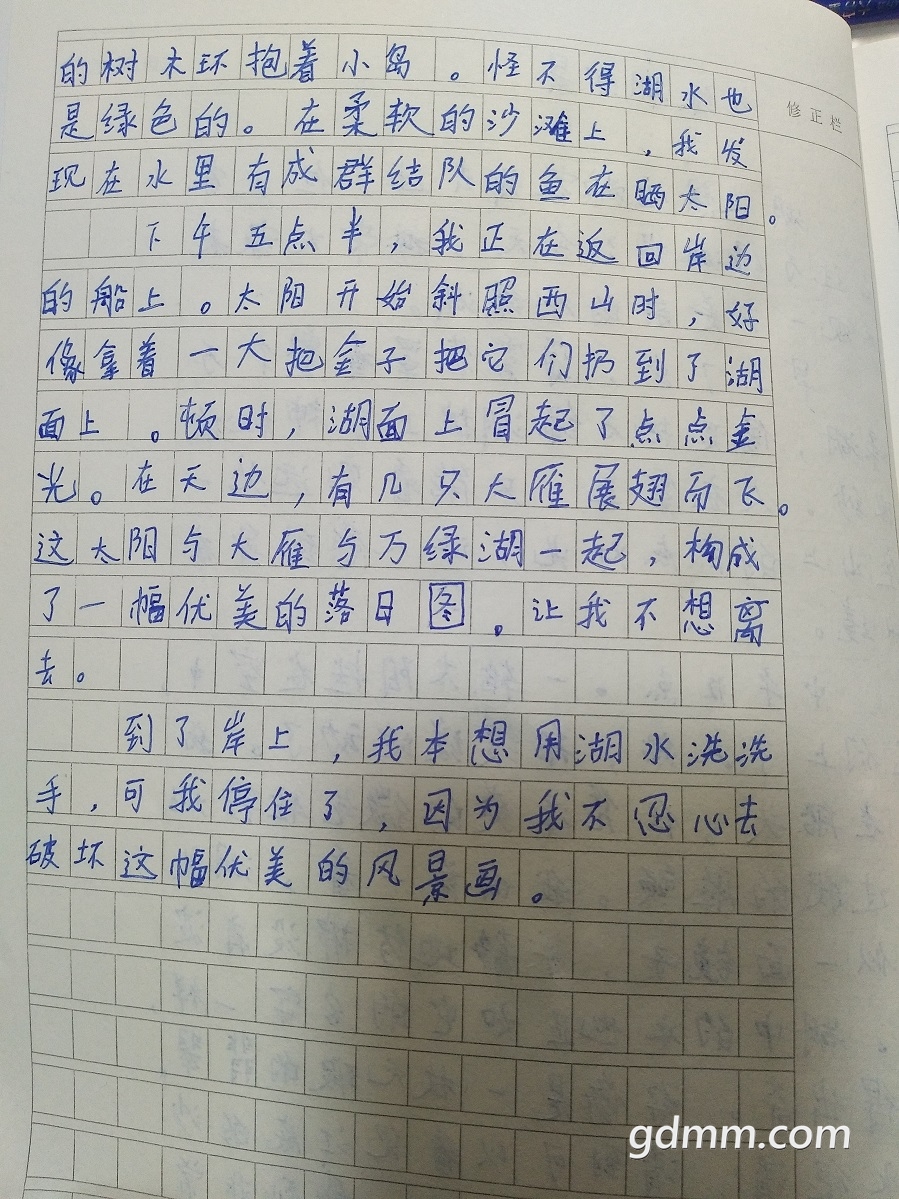 的树木环抱着小岛。怪不得湖水也
修正栏
是绿色的。在柔软的沙滩上，我发
现在水里有成群结队的鱼在晒太阳。
下午五点半，我正在返回岸边
的船上。太阳开始斜照西山时，好
像拿着一大把金子把它们扔到了湖
面上。顿时，湖面上冒起了点点金
光。在天边，有几只大雁展翅而飞。
这太阳与大雁与万绿湖一起，构成
了一幅优美的落日图。让我不想离
去。
到了岸上，我本想用湖水洗洗
手，可我停住了，因为我不忍心去
破坏这幅优美的风景画。
gdmm.com